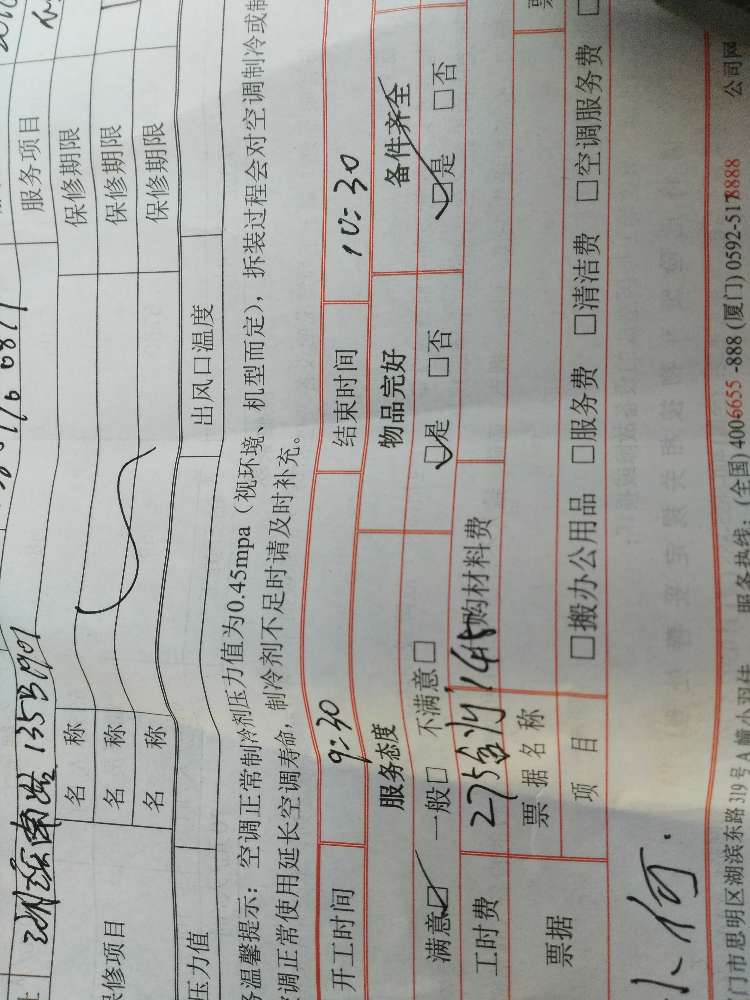 服务项目
保修期限
名 称 保修期限
名 称 保修期限
名 称
修项目
压力值 出风口温度
温馨提示：空调正常制冷剂压力值为0.45mpa（视环境、机型而定），拆装过程会对空调制冷或制
调正常使用延长空调寿命，制冷剂不足时请及时补充。
开工时间 9:30 结束时间 10:30
服务态度 物品完好 备件齐全
满意☑ 一般□ 不满意□ ☑是 □否 ☑是 □否
工时费 275 购材料费
票据 票据名称 票
项 目 □搬办公用品 □服务费 □清洁费 □空调服务费 □
小何.
门市思明区湖滨东路319号A幢 服务热线：(全国) 4006655-888 (厦门) 0592-5178888 公司网